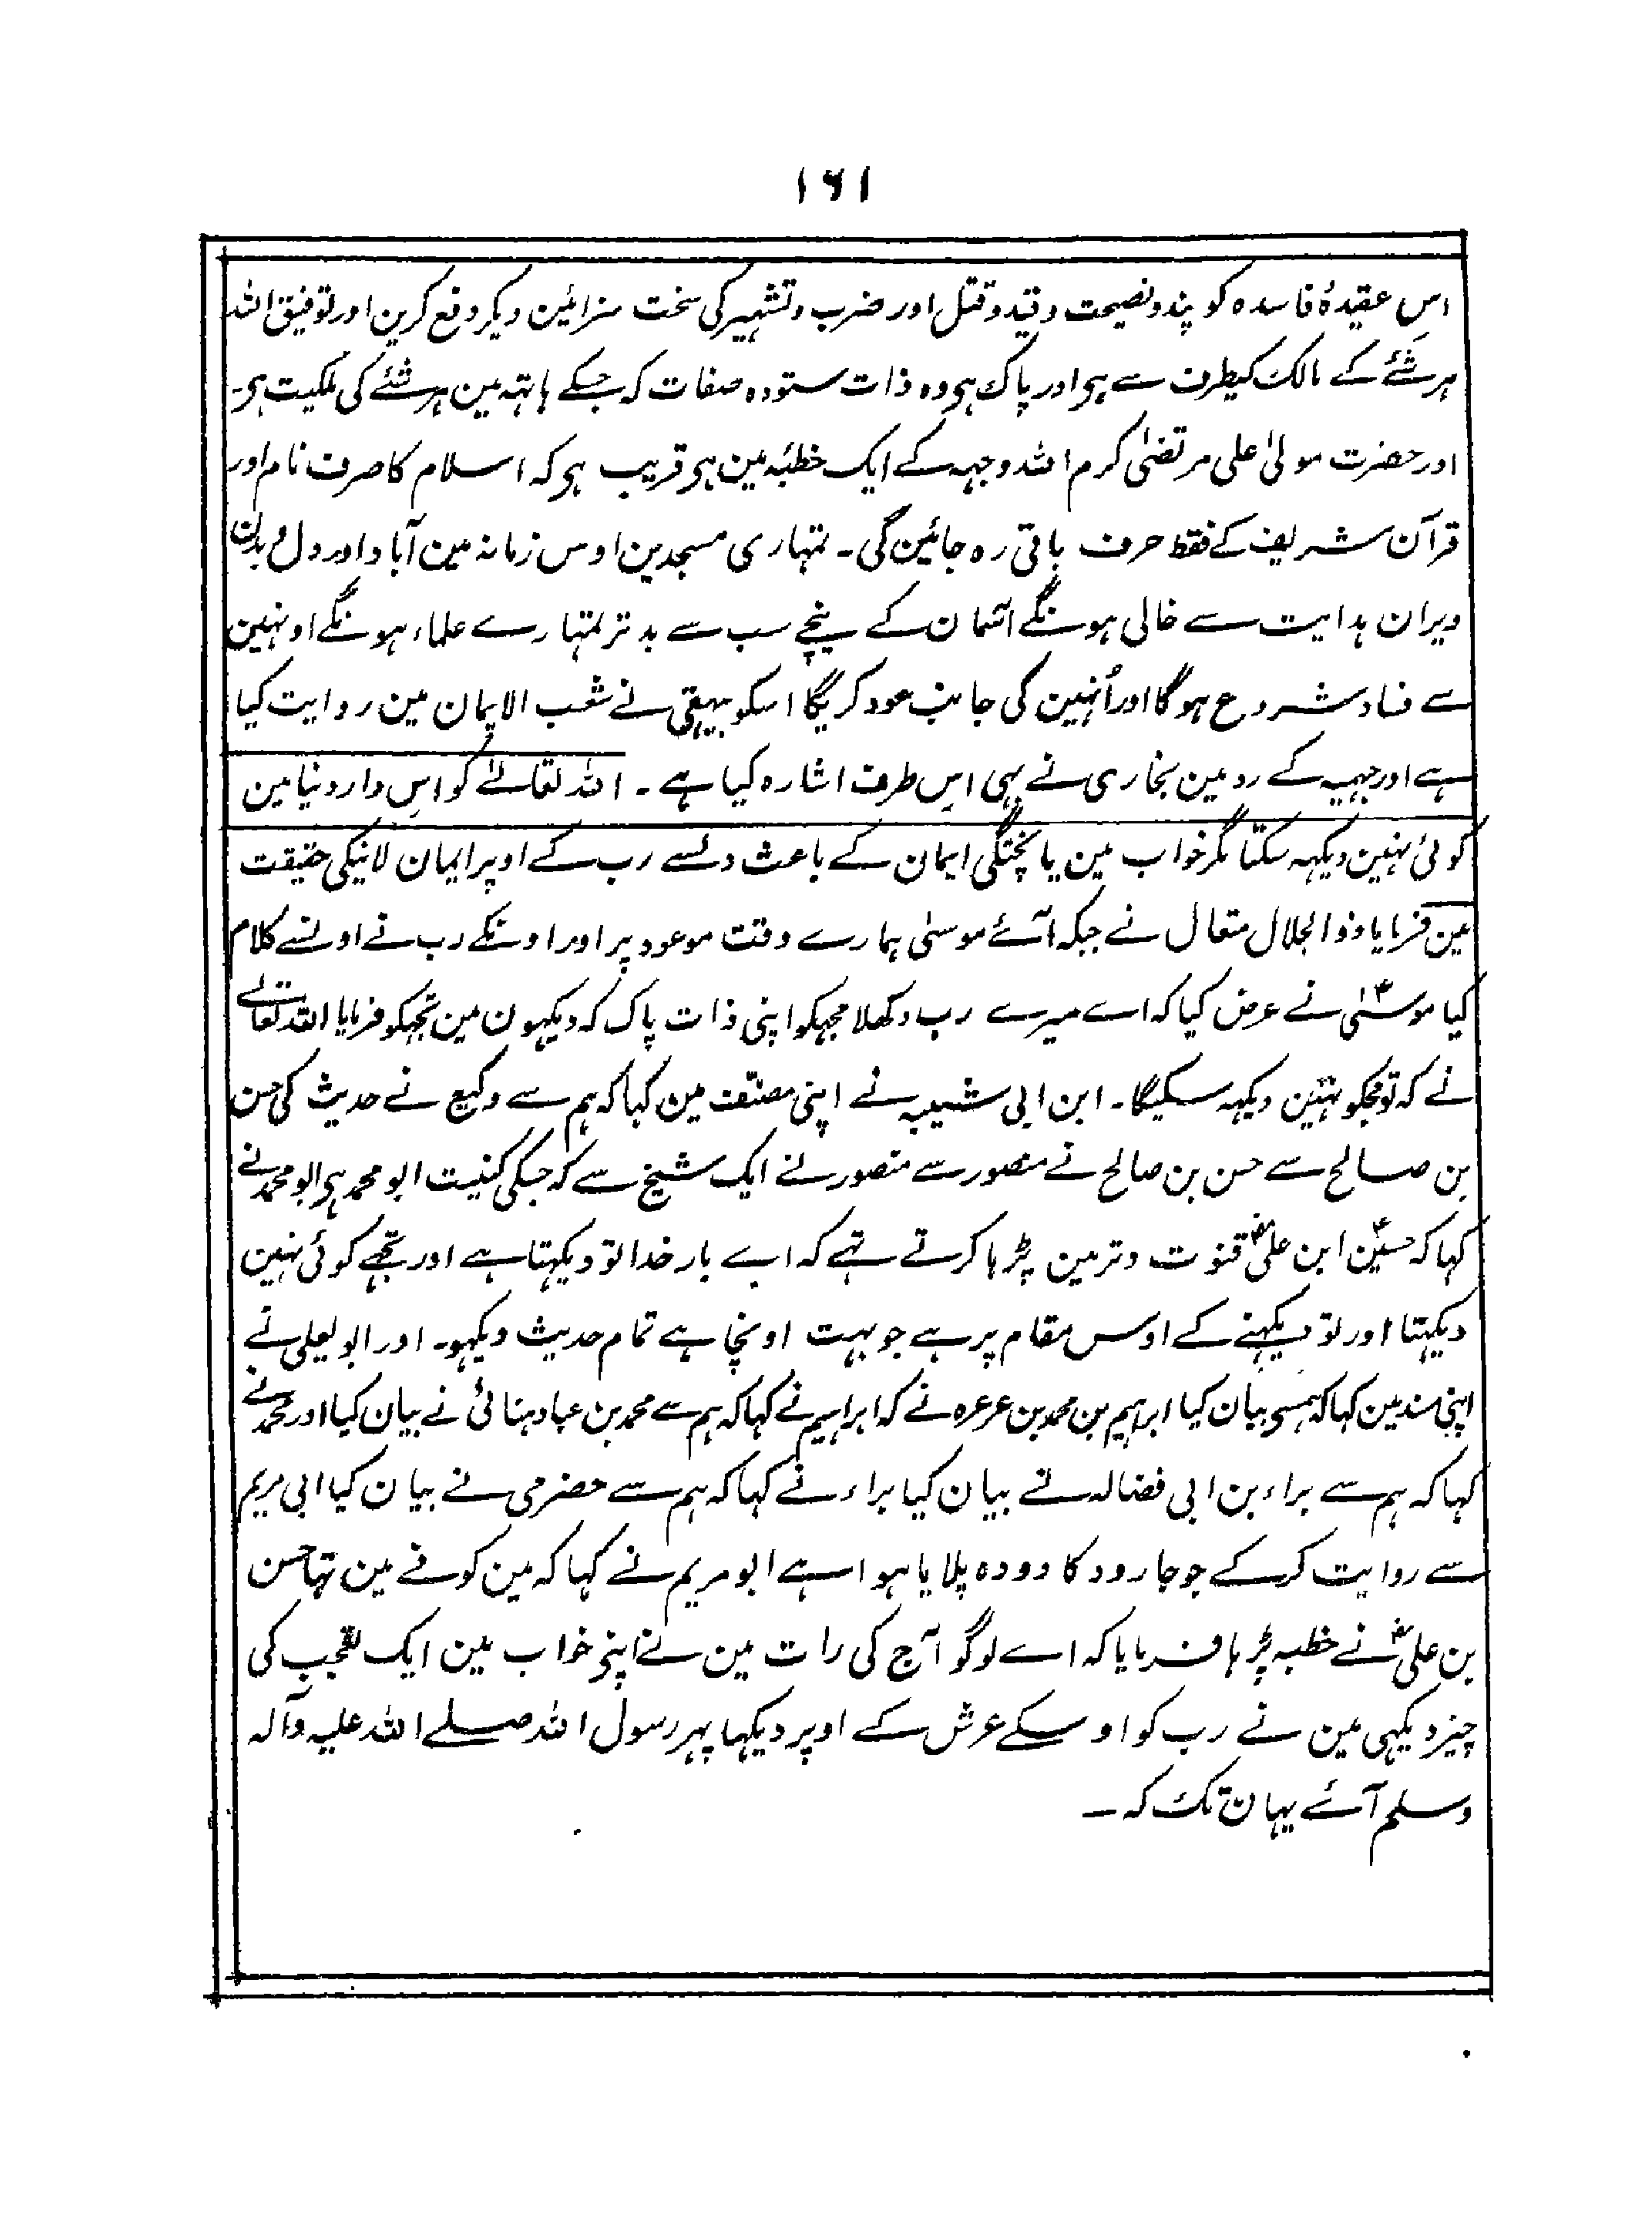 ۱۶۱
اس عقیدۂ فاسدہ کو پند و نصیحت و قید و قتل اور ضرب و تشہیر کی سخت سزائین دیکر دفع کرین اور توفیق اللہ
ہر شئے کے مالک کیطرف سے ہی اور پاک ہی وہ ذات ستودہ صفات کہ جسکے ہاتہہ مین ہر شئے کی ملکیت ہی۔
اور حضرت مولیٰ علی مرتضیٰ کرم اللہ وجہہ کے ایک خطبہ مین ہی قریب ہی کہ اسلام کا صرف نام اور
قرآن شریف کے فقط حرف باقی رہ جائین گی۔ تمہاری مسجدین اوس زمانہ مین آباد اور دل و بدن
ویران ہدایت سے خالی ہونگے آسمان کے نیچے سب سے بدتر تمہارے علماء ہونگے اونہین
سے فساد شروع ہوگا اور اُنہین کی جانب عود کریگا اسکو بیہقی نے شعب الایمان مین روایت کیا
ہے اور جہمیہ کے رد مین بخاری نے بہی اس طرف اشارہ کیا ہے۔ اللہ تعالےٰ کو اس دار دنیا مین
کوئی نہین دیکہہ سکتا مگر خواب مین یا پختگی ایمان کے باعث دلسے رب کے اوپر ایمان لانیکی حقیقت
مین فرمایا ذو الجلال متعال نے جبکہ آئے موسیٰ ہمارے وقت موعود پر اور اونکے رب نے اونسے کلام
کیا موسیٰؑ نے عرض کیا کہ اے میرے رب دکھلا مجہکو اپنی ذات پاک کہ دیکہون مین تجہکو فرمایا اللہ تعالےٰ
نے کہ تو مجکو نہین دیکہہ سکیگا۔ ابن ابی شیبہ نے اپنی مصنف مین کہا کہ ہم سے وکیع نے حدیث کی حسن
بن صالح سے حسن بن صالح نے منصور سے منصور نے ایک شیخ سے کہ جسکی کنیت ابو محمد ہی ابو محمد نے
کہا کہ حسینؑ ابن علیؓ قنوت وتر مین پڑہا کرتے تہے کہ اے بار خدا تو دیکہتا ہے اور تجھے کوئی نہین
دیکہتا اور تو دیکہنے کے اوس مقام پر ہے جو بہت اونچا ہے تمام حدیث دیکہو۔ اور ابو یعلی نے
اپنی مسند مین کہا کہ ہمسے بیان کیا ابراہیم بن محمد بن عرعرہ نے کہ ابراہیم نے کہا کہ ہم سے محمد بن عباد ہنائی نے بیان کیا اور محمد نے
کہا کہ ہم سے براء بن ابی فضالہ نے بیان کیا براء نے کہا کہ ہم سے حضرمی نے بیان کیا ابی مریم
سے روایت کر کے جو جارود کا دودہ پلایا ہوا ہے ابو مریم نے کہا کہ مین کوفے مین تہا حسن
بن علیؓ نے خطبہ پڑہا فرمایا کہ اے لوگو آج کی رات مین نے اپنے خواب مین ایک تعجب کی
چیز دیکہی مین نے رب کو اوسکے عرش کے اوپر دیکہا پہر رسول اللہ صلے اللہ علیہ وآلہ
وسلم آئے یہان تک کہ ــ